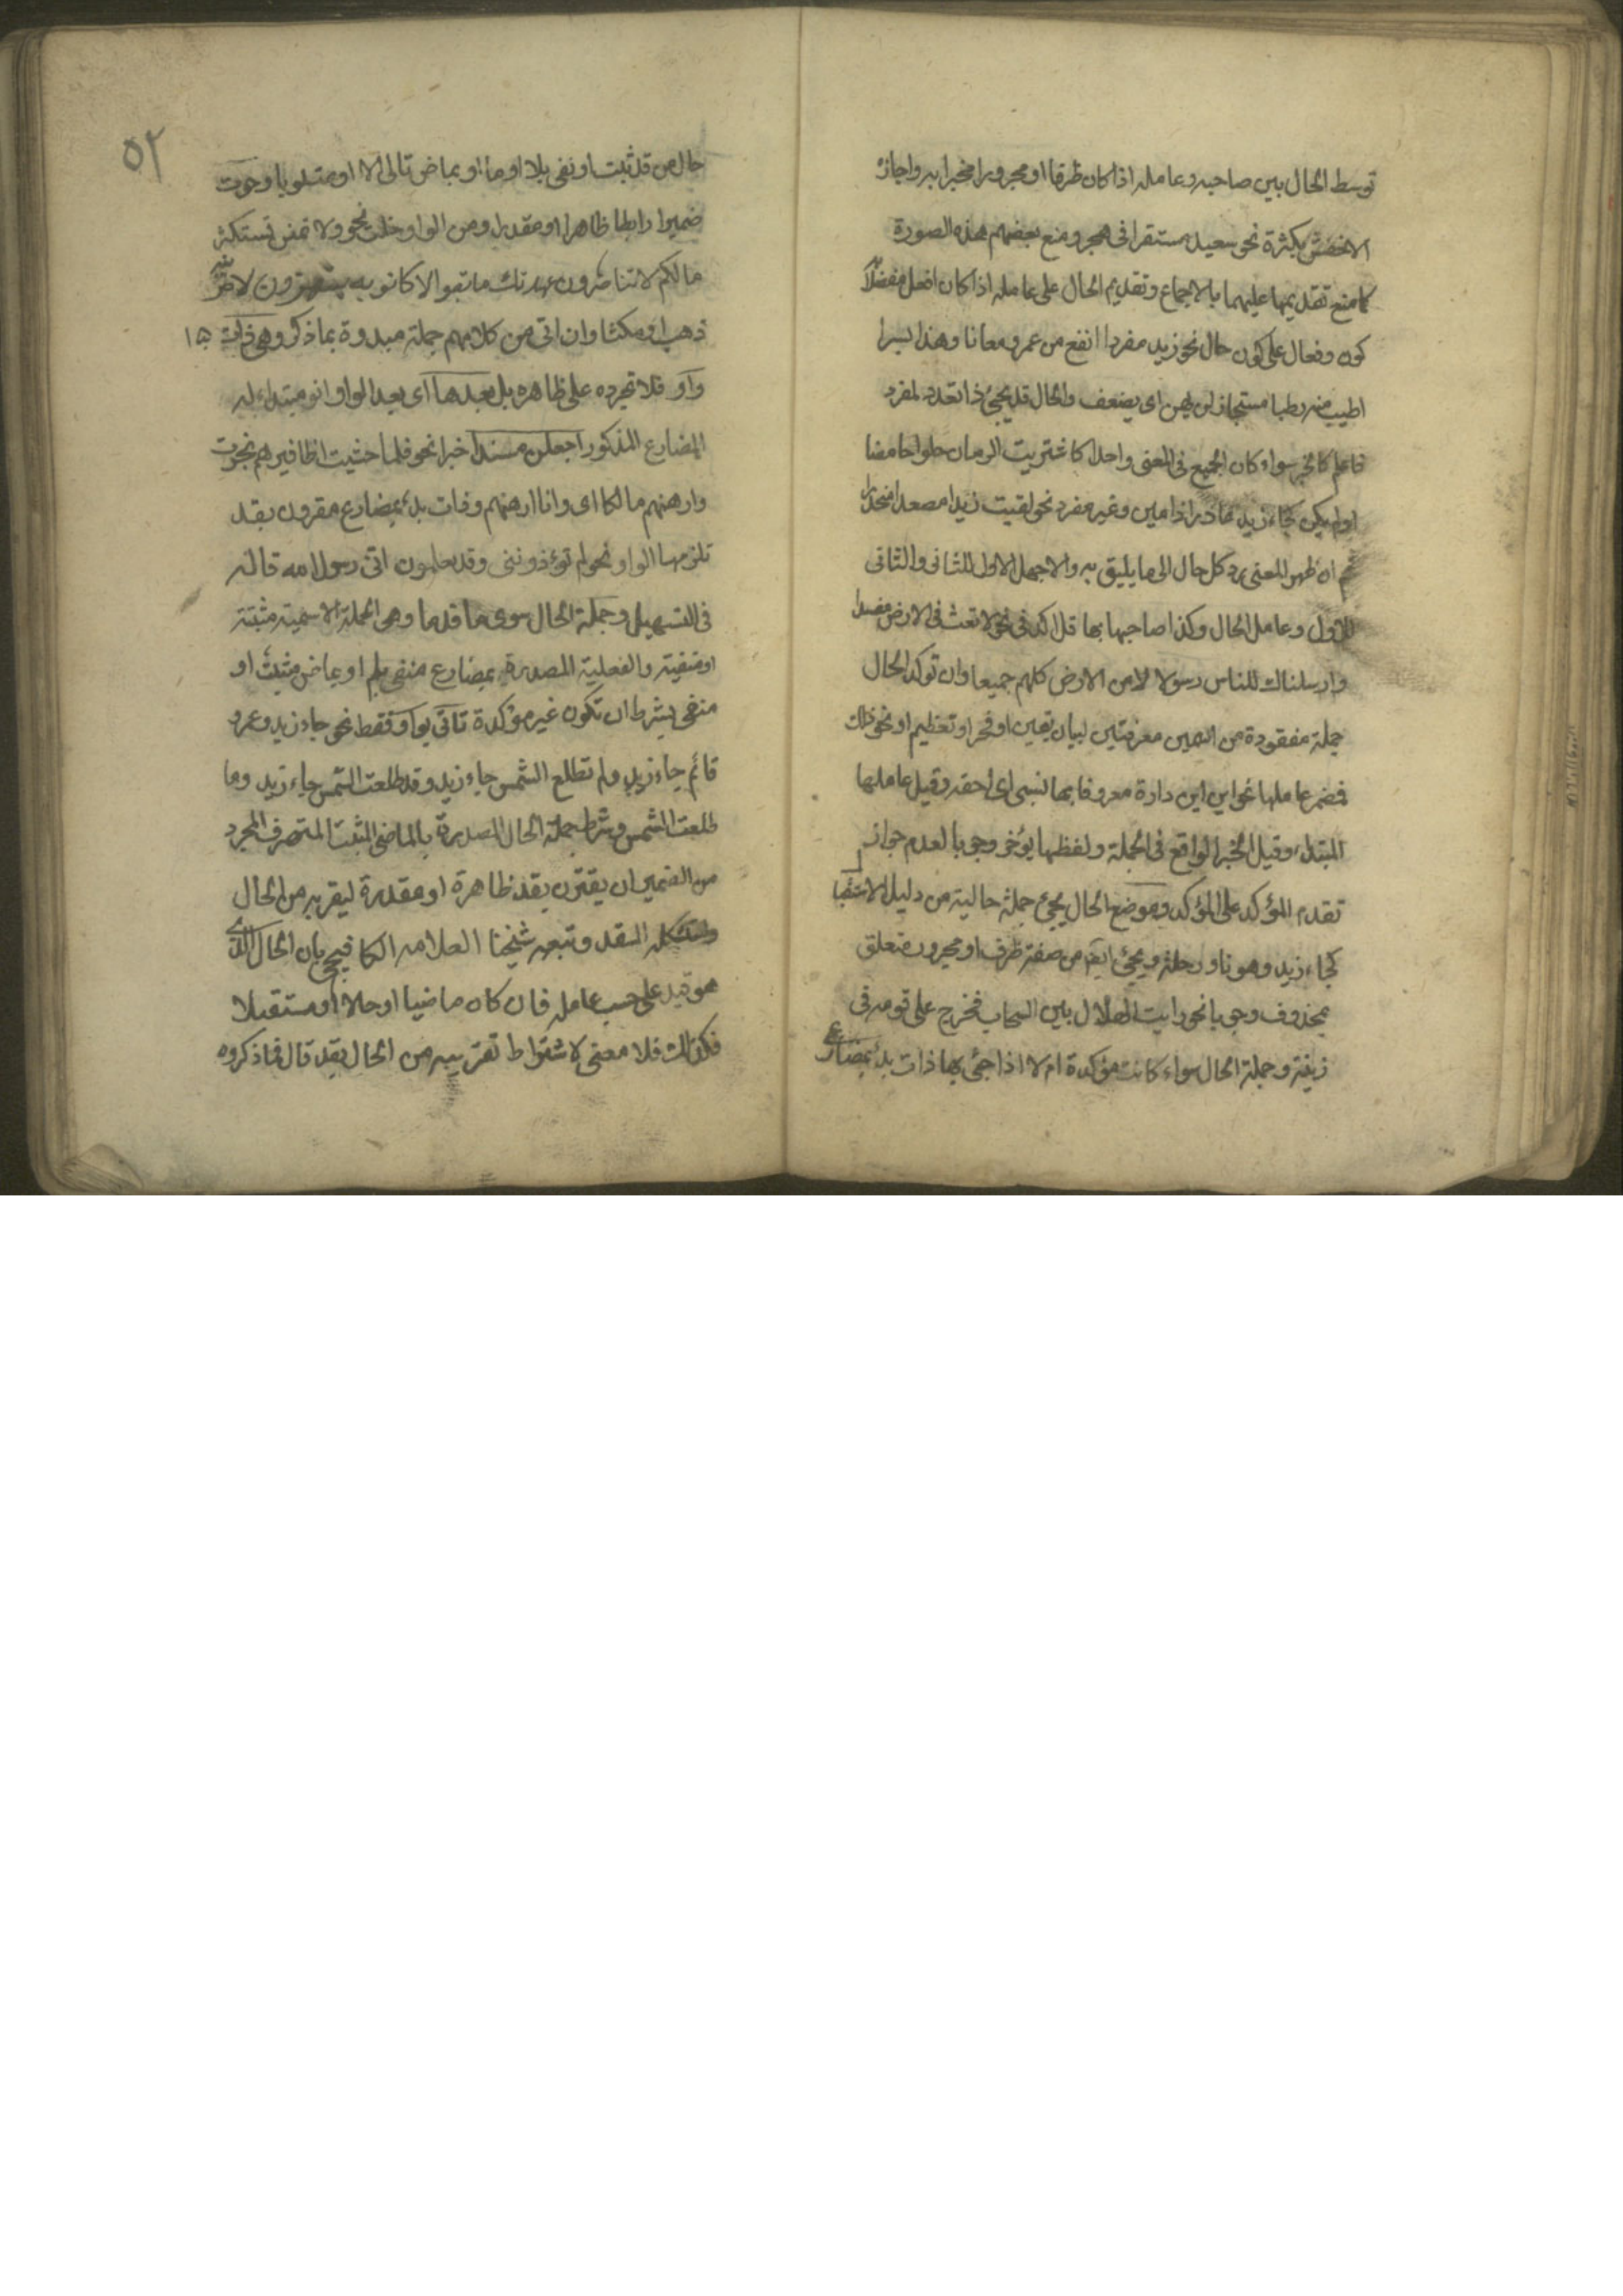 توسط الحال بين صاحبه وعامله اذا كان ظرفا او مجرورا مخبرا به واجازه
الاخفش بكثرة نحو سعيد مستقرا فى هجر ومنع بعضهم هذه الصورة
كما منع تقديمها عليهما بالاجماع وتقديم الحال على عامله اذا كان افعل مفضلا
كون وفعال على كون حال نحو زيد مفردا انفع من عمرو معانا وهذا بسرا
اطيب منه رطبا مستجاز لن يهن اى يضعف والحال قد يجئ ذا تعدد لمفرد
فاعلم كالخبر سواء كان الجميع فى المعنى واحدا كاشتريت الرمان حلوا حامضا
او لم يكن كجاء زيد غادرا ذا مين وغير مفرد نحو لقيت زيدا مصعدا منحدرا
ثم ان ظهر المعنى رد كل حال الى ما يليق به والا جعل الاول للثانى والثانى
للاول وعامل الحال وكذا صاحبها بها قد اكد فى نحو لا تعث فى الارض مفسدا
وارسلناك للناس رسولا لامن الارض كلهم جميعا وان توكد الحال
جملة مفقودة من اسمين معرفتين لبيان يقين او فخر او تعظيم او نحو ذلك
فضمر عاملها نحو ابن ابن دارة معروفا بها نسبى اى احقه وقيل عاملها
المبتداء وقيل الخبر الواقع فى الجملة ولفظها يؤخر وجوبا لعدم جواز
تقدم المؤكد على المؤكد وموضع الحال يجئ جملة حالية من دليل الاستقبا
كجاء زيد وهو ناو رحلة ويجئ ايضا من صفته ظرف او مجرور متعلق
بمحذوف وجوبا نحو رايت الهلال بين السحاب فخرج على قومه فى
زينته وجملة الحال سواء كانت مؤكدة ام لا اذا جئ بها ذات بدئ بمضارع
٥٢
حال من قد ثبت او نفى بلا او ما او بماض تالى الا او متلو باو حوت
ضميرا رابطا ظاهرا او مقدرا ومن الواو خلت نحو ولا تمنن تستكثر
مالكم لا تناصرون عهدتك ما تصبو الا كانوا به يستهزؤن لاضربنه
ذهب او مكث وان اتى من كلامهم جملة مبدوة بما ذكر وهى ذات
١٥
واو فلا تجره على ظاهره بل بعدها اى بعد الواو انو مبتداء له
المضارع المذكور اجعلن مسندا خبرا نحو فلما خشيت اظافيرهم نجوت
وارهنهم مالكا اى وانا ارهنهم وذات بدء بمضارع مقرون بقد
تلزمها الواو نحو لم تؤذوننى وقد تعلمون انى رسول الله قاله
فى التسهيل وجملة الحال سوى ما قدما وهى الجملة الاسمية مثبتة
او منفية والفعلية المصدرة بمضارع منفى بلم او بماض مثبت او
منفى بشرط ان تكون غير مؤكدة تاتى بواو فقط نحو جاء زيد وعمرو
قائم جاء زيد ولم تطلع الشمس جاء زيد وقد طلعت الشمس جاء زيد وما
طلعت الشمس وشرط جملة الحال المصدرة بالماضى المثبت المتصرف المجرد
من الضمير ان يقترن بقد ظاهرة او مقدرة ليقربه من الحال
واستشكله السقد وتبعه شيخنا العلامه الكافيجى بان الحال الذى
هو قيد على حسب عامله فان كان ماضيا او حالا او مستقبلا
فكذلك فلا معنى لاشتراط تقريبه من الحال بقد قال فما ذكروه